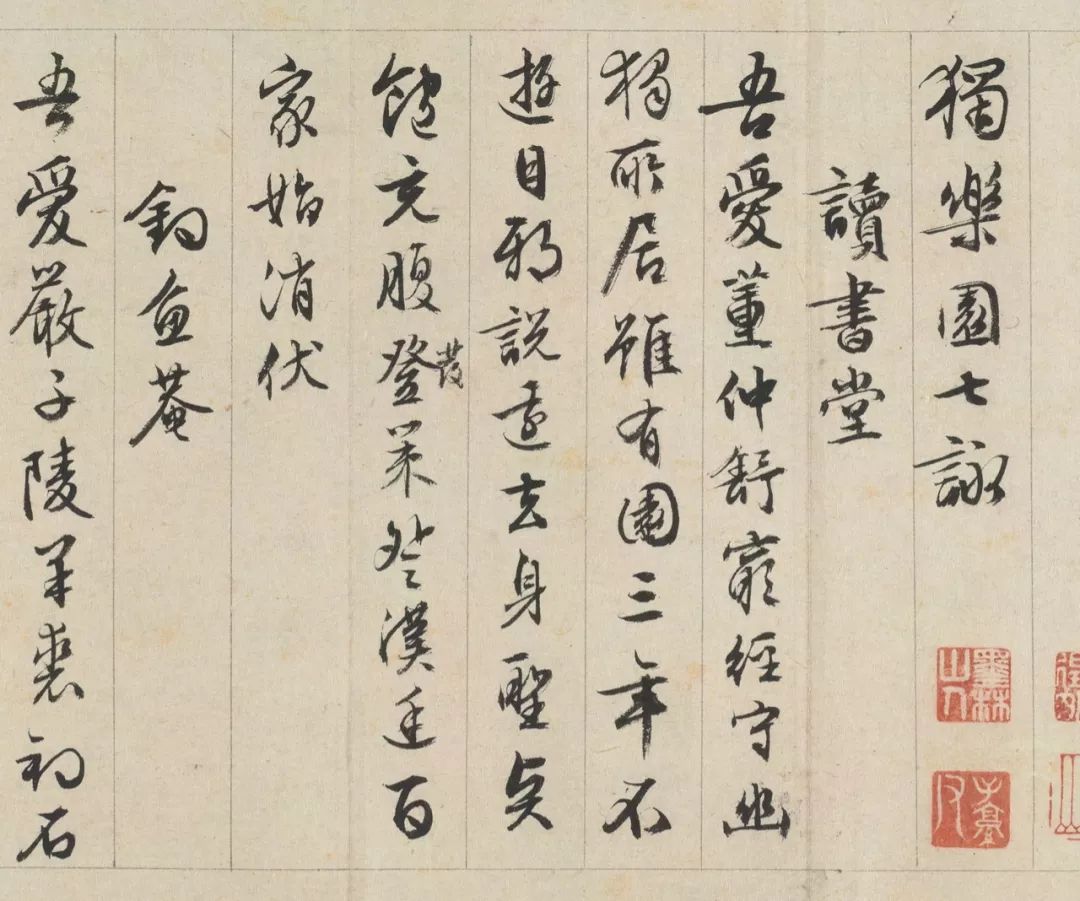 獨樂園七詠
墨林山人
子京父
讀書堂
吾愛董仲舒窮經守幽
獨所居雖有園三年不
遊目邪說遠去身聖言
飽充腹登發策登漢廷百
家始消伏
釣魚菴
吾愛嚴子陵羊裘初石